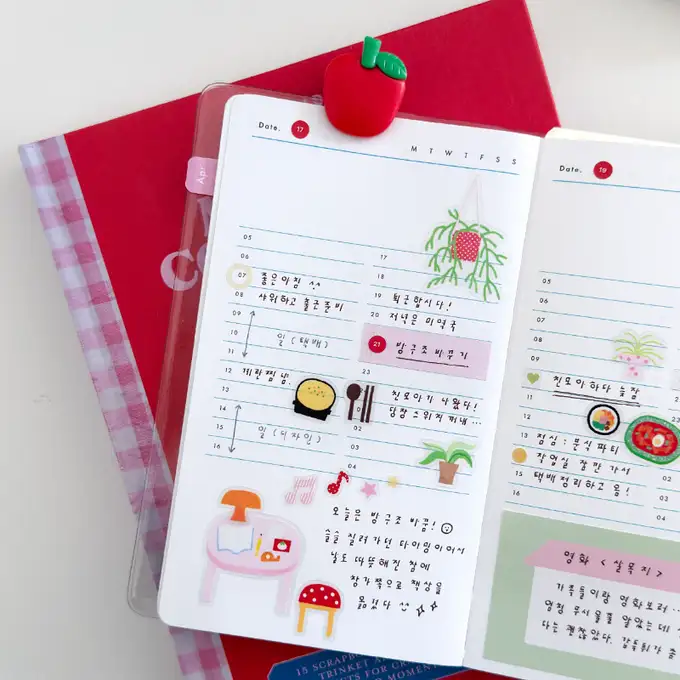 Apr
Date. 17
M T W T F S S
05
06
07 좋은아침 ^^
08 샤워하고 출근준비
09
10 일 (택배)
11
12 계란찜냠
13
14
15 일 (디자인)
16
17
18
19 퇴근합시다!
20 저녁은 미역국
21 방구조 바꾸기
23
진모아기 나왔다!
당장 스위치 꺼내...
02
03
04
오늘은 방구조 바꿈!
슬슬 질려가던 타이밍이어서
날도 따뜻해진 참에
창가쪽으로 책상을
옮겼다
Date. 19
05
06
07
08
09
진모아하다 늦잠
11
12
13 점심: 분식파티
작업실 잠깐 가서
15 택배정리하고 옴!
16
02
03
04
영화 <살목지>
가족들이랑 영화보러...
엄청 무서울줄 알았는데
다는 괜찮았다.
15 SCRAPBO
TRINKET
MOMENT